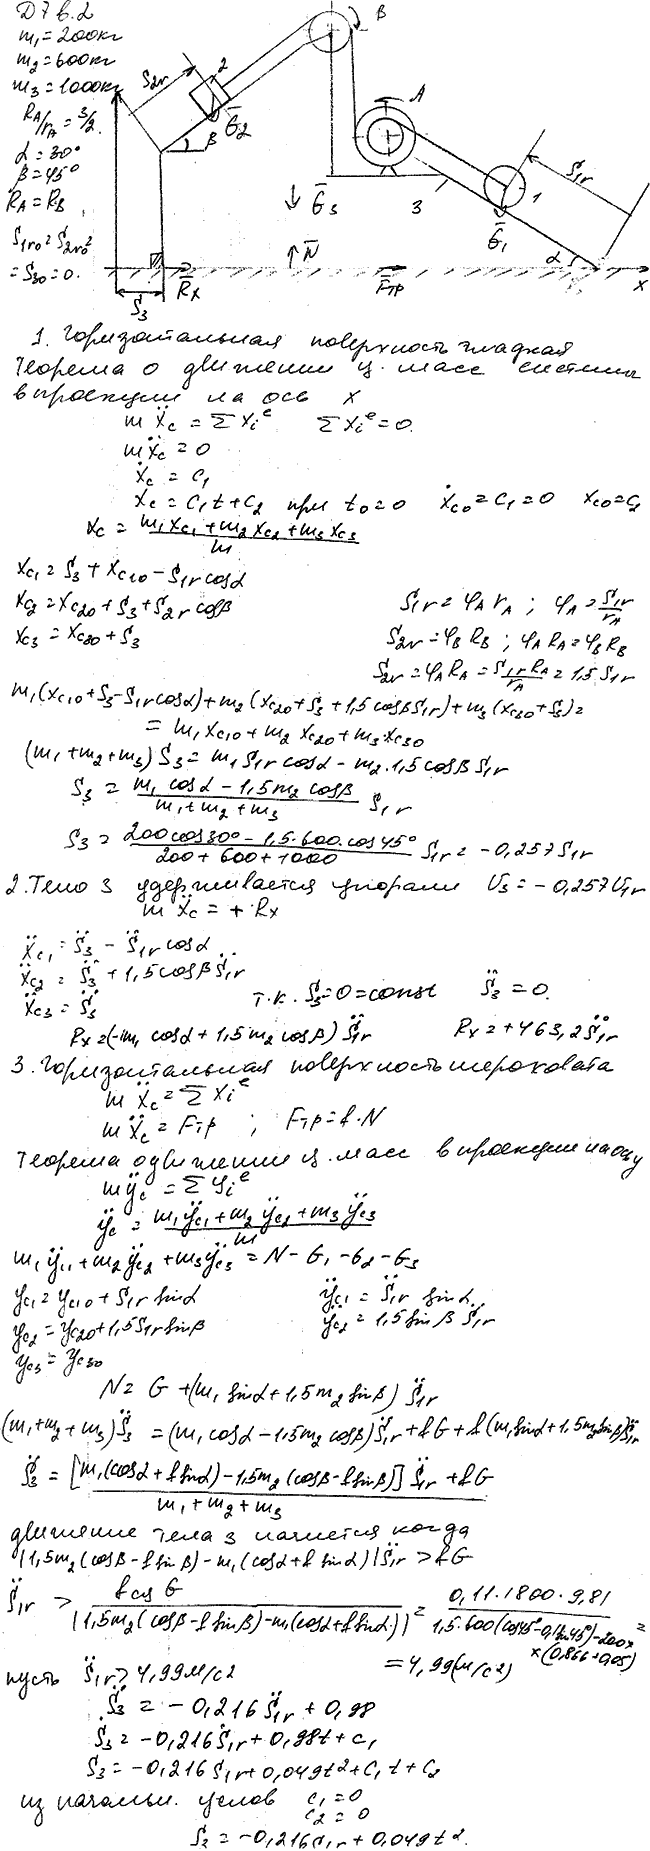 Д7 в.2
m₁=200кг
m₂=600кг
m₃=1000кг
R_A/r_A = 3/2.
α=30°
β=45°
R_A=R_B
S₁r₀=S₂r₀=
=S₃₀=0.
S₂r
2
B
A
β
G̅₂
G̅₃
3
1
S₁r
G̅₁
N̅
α
R̅x
F̅тр
x
S₃
1. Горизонтальная поверхность гладкая
Теорема о движении ц. масс системы
в проекции на ось x
mẍc = ΣXiᵉ ΣXiᵉ=0.
mẍc=0
ẋc = C₁
xc = C₁t+C₂ при t₀=0 ẋc₀=C₁=0 xc₀=C₂
xc = (m₁xc₁+m₂xc₂+m₃xc₃)/m
xc₁=S₃+xc₁₀−S₁r cosα
xc₂=xc₂₀+S₃+S₂r cosβ S₁r=φ_A r_A ; φ_A=S₁r/r_A
xc₃=xc₃₀+S₃ S₂r=φ_B R_B ; φ_A R_A=φ_B R_B
S₂r=φ_A R_A=S₁r R_A/r_A=1,5 S₁r
m₁(xc₁₀+S₃−S₁r cosα)+m₂(xc₂₀+S₃+1,5cosβS₁r)+m₃(xc₃₀+S₃)=
= m₁xc₁₀+m₂xc₂₀+m₃xc₃₀
(m₁+m₂+m₃)S₃=m₁S₁r cosα−m₂·1,5cosβ S₁r
S₃ = (m₁cosα−1,5m₂cosβ)/(m₁+m₂+m₃) S₁r
S₃ = (200cos30°−1,5·600·cos45°)/(200+600+1000) S₁r = −0,257S₁r
2. Тело 3 удерживается упорами U₃=−0,257U₁r
mẍc = +Rx
ẍc₁=S̈₃−S̈₁r cosα
ẍc₂=S̈₃+1,5cosβS̈₁r
ẍc₃=S̈₃ т.к. S₃=0=const S̈₃=0.
Rx=(−m₁cosα+1,5m₂cosβ)S̈₁r Rx=+463,2S̈₁r
3. Горизонтальная поверхность шероховата
mẍc=ΣXiᵉ
mẍc=Fтр ; Fтр=f·N
Теорема о движении ц. масс в проекции на оси y
mÿc=ΣYiᵉ
ÿc = (m₁ÿc₁+m₂ÿc₂+m₃ÿc₃)/m
m₁ÿc₁+m₂ÿc₂+m₃ÿc₃=N−G₁−G₂−G₃
yc₁=yc₁₀+S₁r sinα ÿc₁=S̈₁r sinα
yc₂=yc₂₀+1,5S₁r sinβ ÿc₂=1,5sinβ S̈₁r
yc₃=yc₃₀
N=G+(m₁sinα+1,5m₂sinβ)S̈₁r
(m₁+m₂+m₃)S̈₃=(m₁cosα−1,5m₂cosβ)S̈₁r+fG+f(m₁sinα+1,5m₂sinβ)S̈₁r
S̈₃=[m₁(cosα+f sinα)−1,5m₂(cosβ−f sinβ)]S̈₁r+fG/(m₁+m₂+m₃)
движение тела 3 начнется когда
|1,5m₂(cosβ−f sinβ)−m₁(cosα+f sinα)|S̈₁r>fG
S̈₁r > fсц G/|1,5m₂(cosβ−f sinβ)−m₁(cosα+f sinα)| = 0,11·1800·9,81/(1,5·600(cos45°−0,1sin45°)−200×
×(0,866+0,05)) =
=4,99(м/с²)
пусть S̈₁r>4,99м/с²
S̈₃=−0,216S̈₁r+0,98
Ṡ₃=−0,216Ṡ₁r+0,98t+C₁
S₃=−0,216S₁r+0,049t²+C₁t+C₂
из начальн. услов C₁=0
C₂=0
S₃=−0,216S₁r+0,049t².